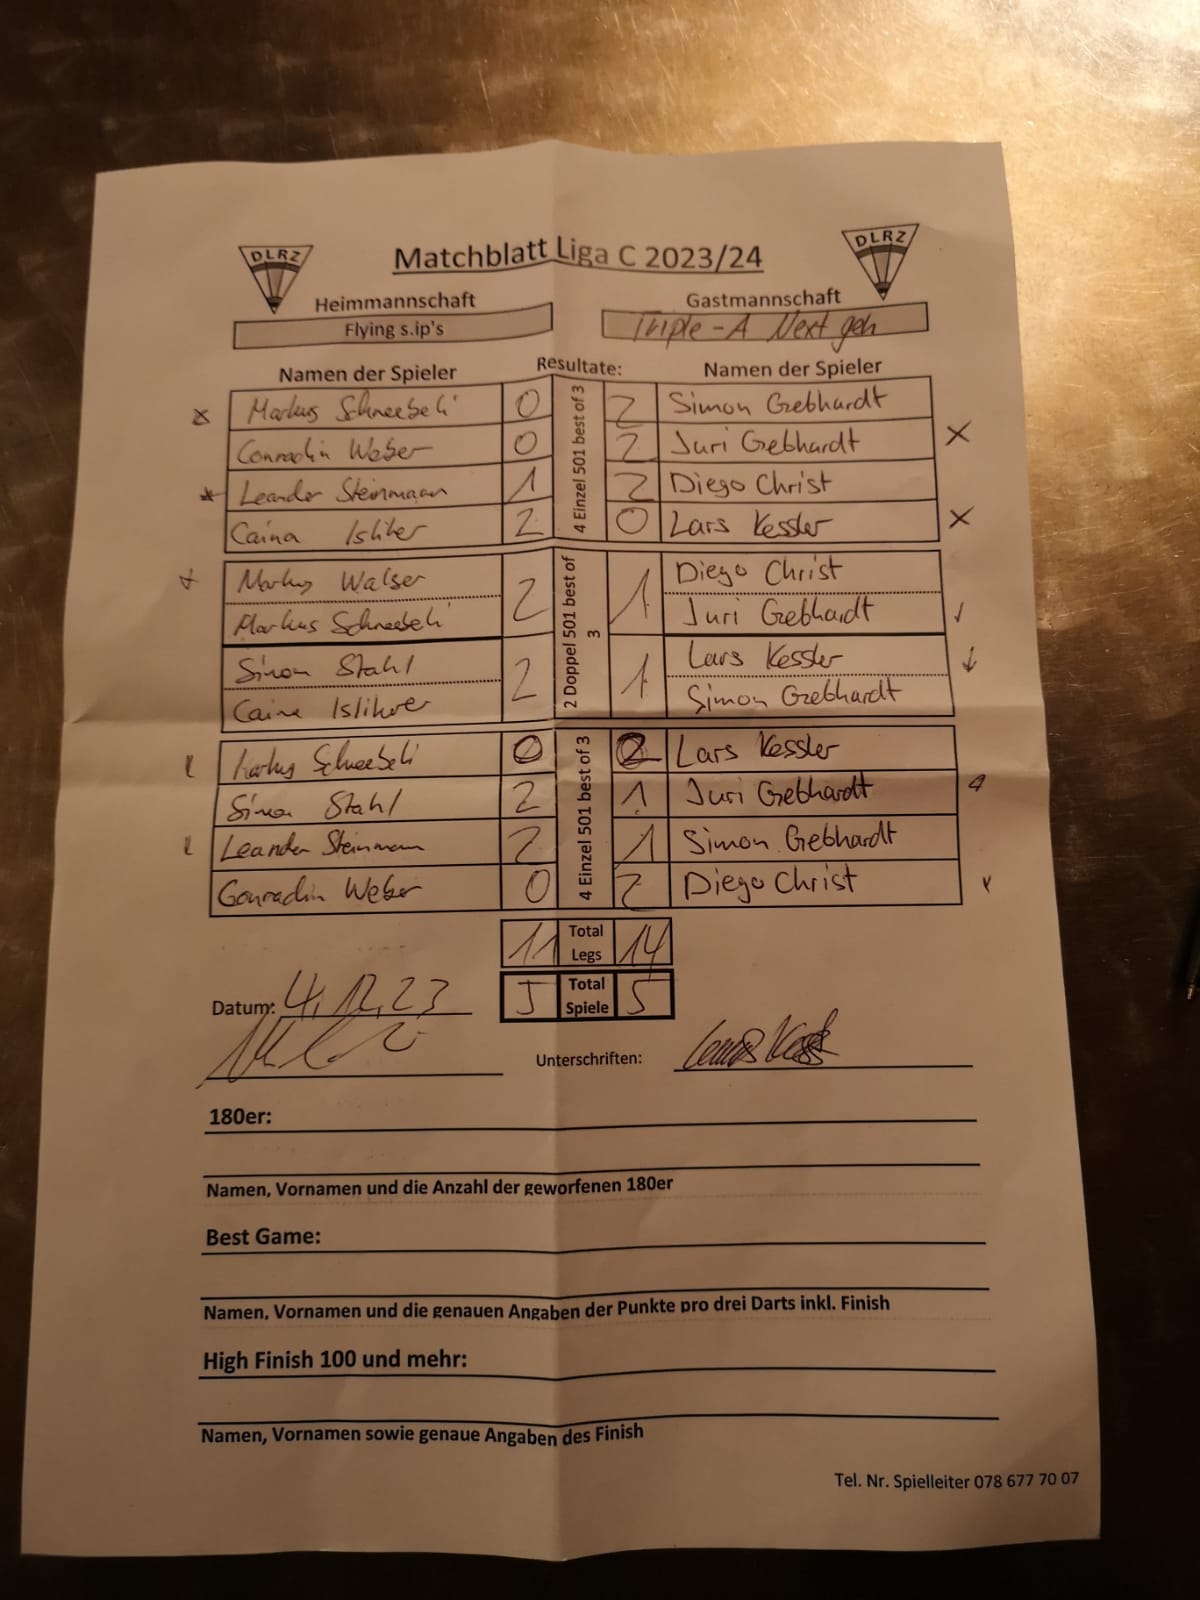 DLRZ Matchblatt Liga C 2023/24 DLRZ
Heimmannschaft Gastmannschaft
Flying s.ip's Triple-A Next gen
Namen der Spieler Resultate: Namen der Spieler
4 Einzel 501 best of 3
Markus Schneebeli 0 2 Simon Gebhardt
Conradin Weber 0 2 Juri Gebhardt
Leander Steinmann 1 2 Diego Christ
Caina Isliker 2 0 Lars Kessler
2 Doppel 501 best of 3
Markus Walser 2 1 Diego Christ
Markus Schneebeli Juri Gebhardt
Simon Stahl 2 1 Lars Kessler
Caina Isliker Simon Gebhardt
4 Einzel 501 best of 3
Markus Schneebeli 0 2 Lars Kessler
Simon Stahl 2 1 Juri Gebhardt
Leander Steinmann 2 1 Simon Gebhardt
Conradin Weber 0 2 Diego Christ
11 Total Legs 14
5 Total Spiele 5
Datum: 4.12.23
Unterschriften:
180er:
Namen, Vornamen und die Anzahl der geworfenen 180er
Best Game:
Namen, Vornamen und die genauen Angaben der Punkte pro drei Darts inkl. Finish
High Finish 100 und mehr:
Namen, Vornamen sowie genaue Angaben des Finish
Tel. Nr. Spielleiter 078 677 70 07